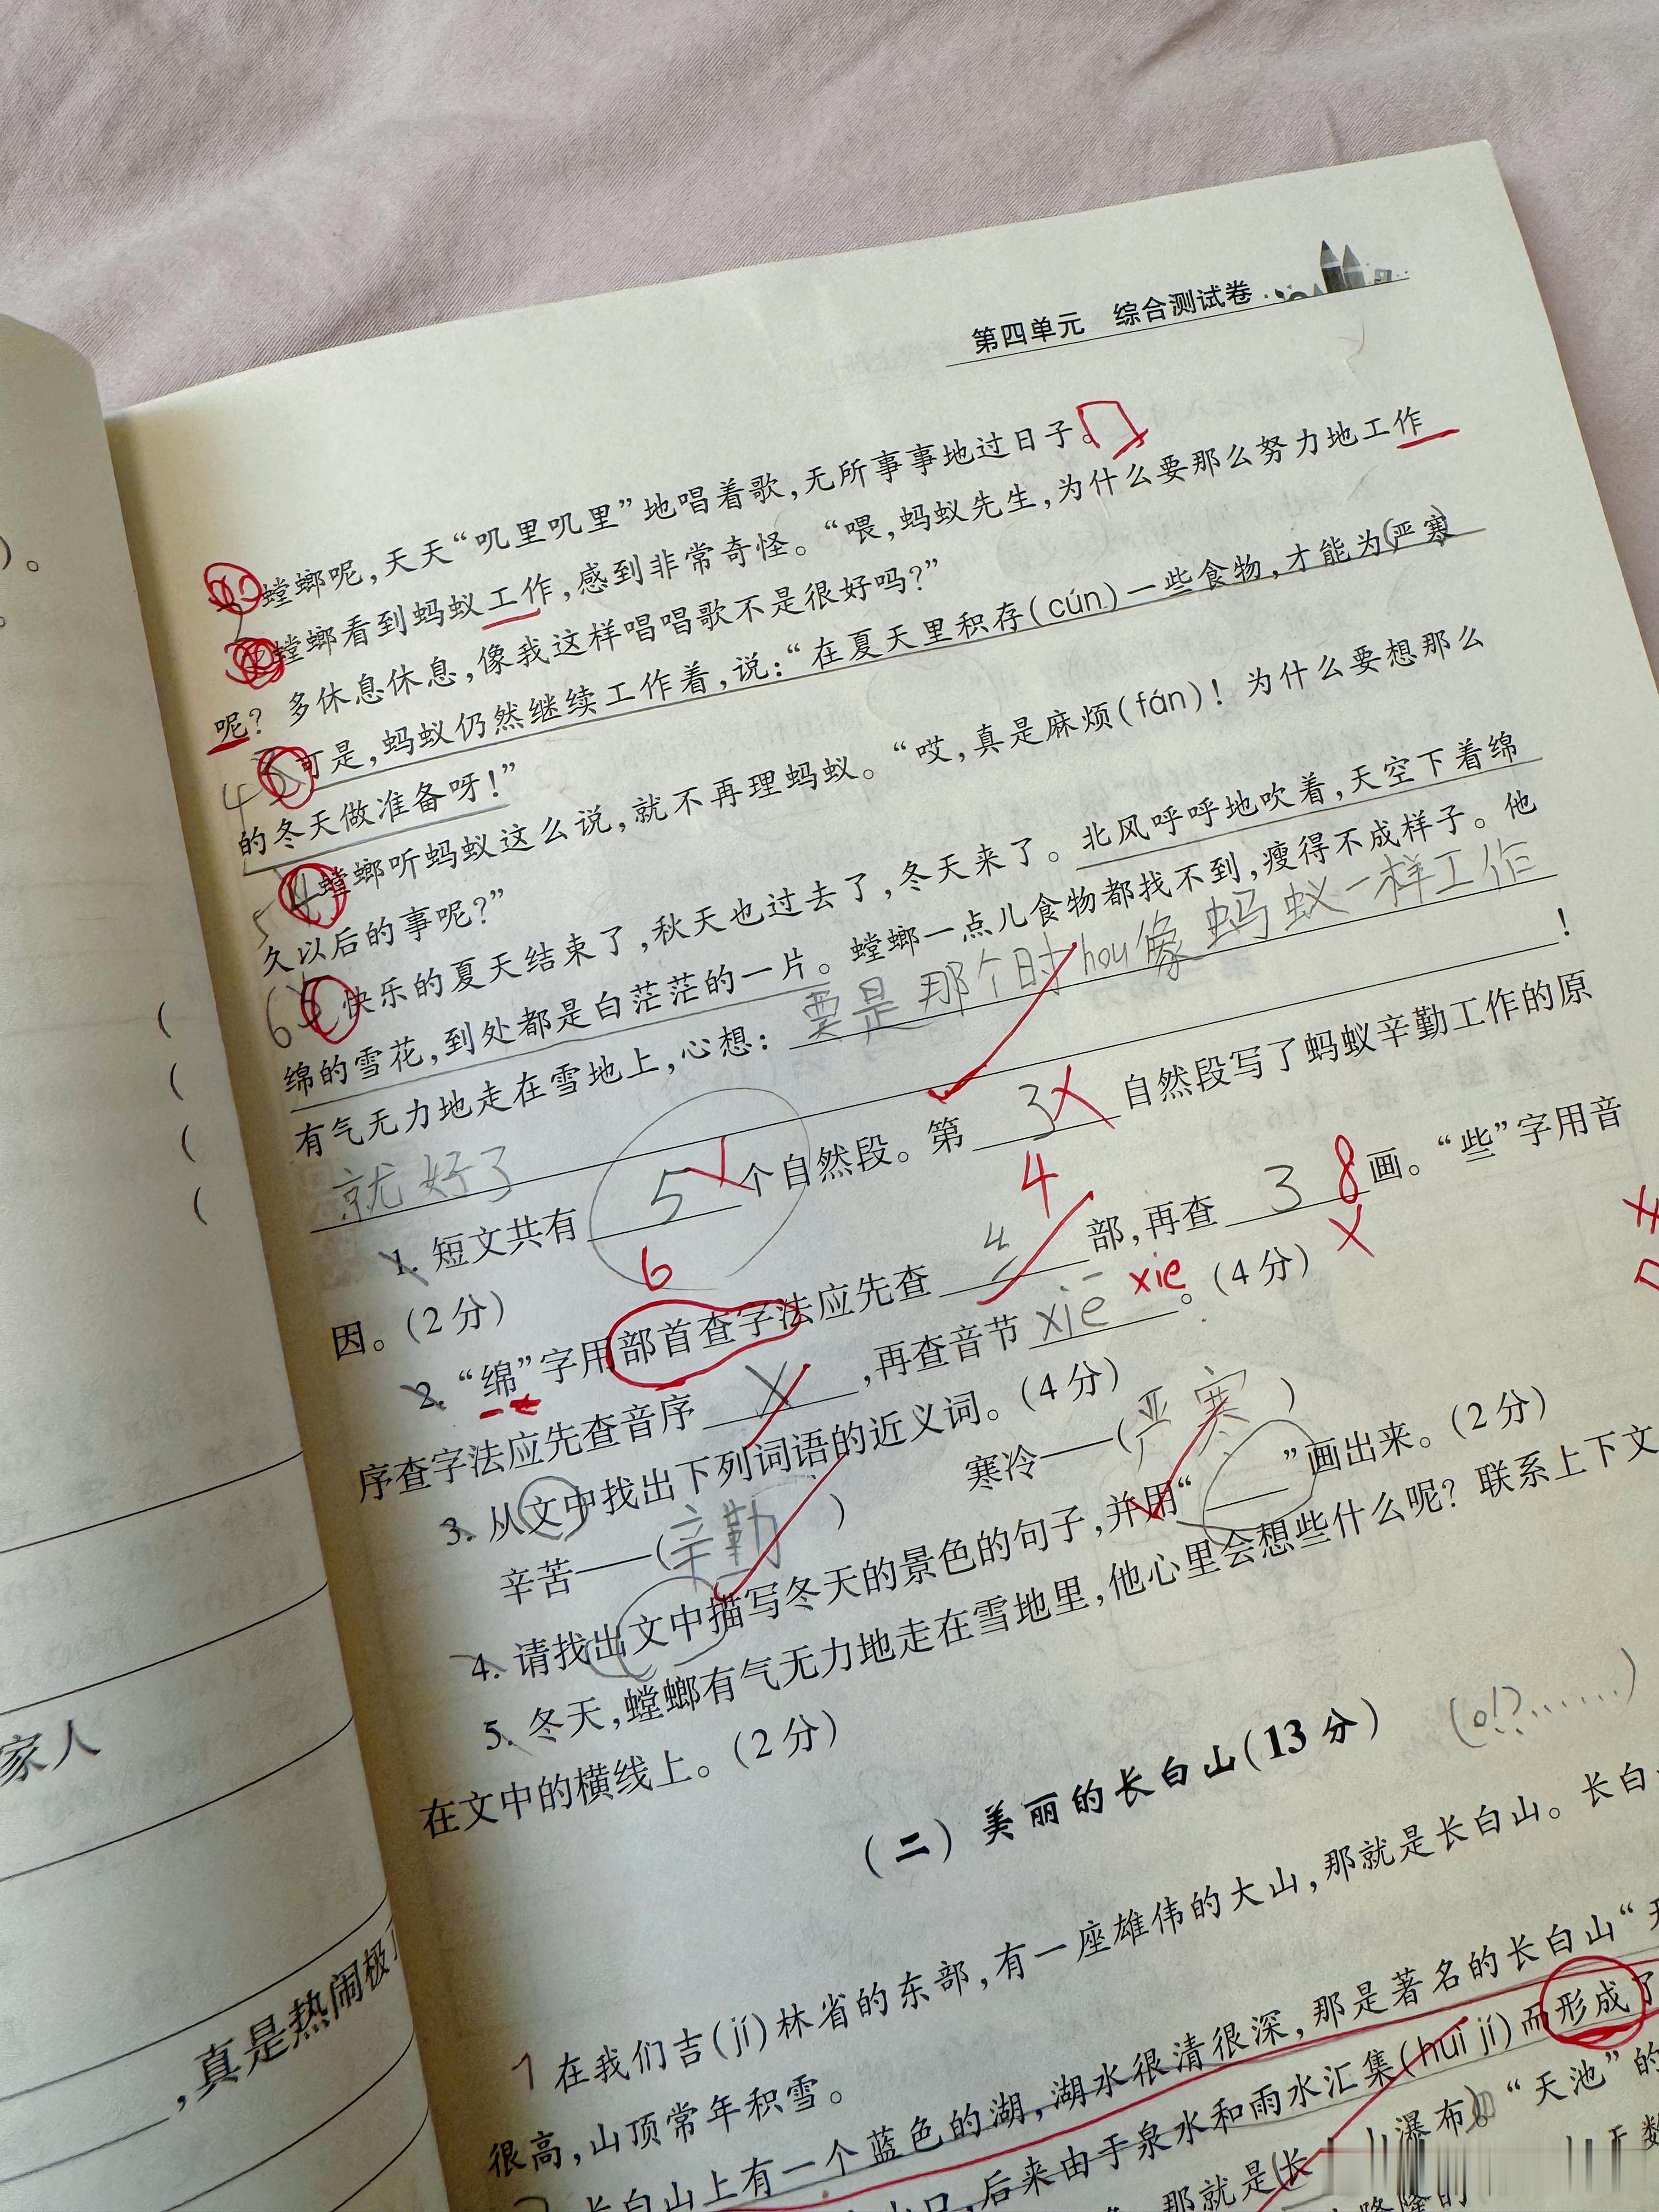 第四单元 综合测试卷
螳螂呢，天天“叽里叽里”地唱着歌，无所事事地过日子。
螳螂看到蚂蚁工作，感到非常奇怪。“喂，蚂蚁先生，为什么要那么努力地工作
呢？多休息休息，像我这样唱唱歌不是很好吗？”
4 可是，蚂蚁仍然继续工作着，说：“在夏天里积存(cún)一些食物，才能为(严寒)
的冬天做准备呀！”
5 螳螂听蚂蚁这么说，就不再理蚂蚁。“哎，真是麻烦(fán)！为什么要想那么
久以后的事呢？”
6 快乐的夏天结束了，秋天也过去了，冬天来了。北风呼呼地吹着，天空下着绵
绵的雪花，到处都是白茫茫的一片。螳螂一点儿食物都找不到，瘦得不成样子。他
有气无力地走在雪地上，心想：要是那个时hou像蚂蚁一样工作
就好了！
1. 短文共有 5 个自然段。第 3 自然段写了蚂蚁辛勤工作的原
6 4
因。(2分)
2. “绵”字用部首查字法应先查 纟 部，再查 3 8 画。“些”字用音
序查字法应先查音序 X ，再查音节 xiē xie 。(4分)
3. 从文中找出下列词语的近义词。(4分)
辛苦——(辛勤) 寒冷——(严寒)
4. 请找出文中描写冬天的景色的句子，并用“____”画出来。(2分)
5. 冬天，螳螂有气无力地走在雪地里，他心里会想些什么呢？联系上下文
在文中的横线上。(2分)
(二) 美丽的长白山(13分) (。！？……)
1 在我们吉(jí)林省的东部，有一座雄伟的大山，那就是长白山。长白
很高，山顶常年积雪。
长白山上有一个蓝色的湖，湖水很清很深，那是著名的长白山“天
后来由于泉水和雨水汇集(huì jí)而形成了
瀑布。“天池”的
那就是(长
)。
家人
，真是热闹极